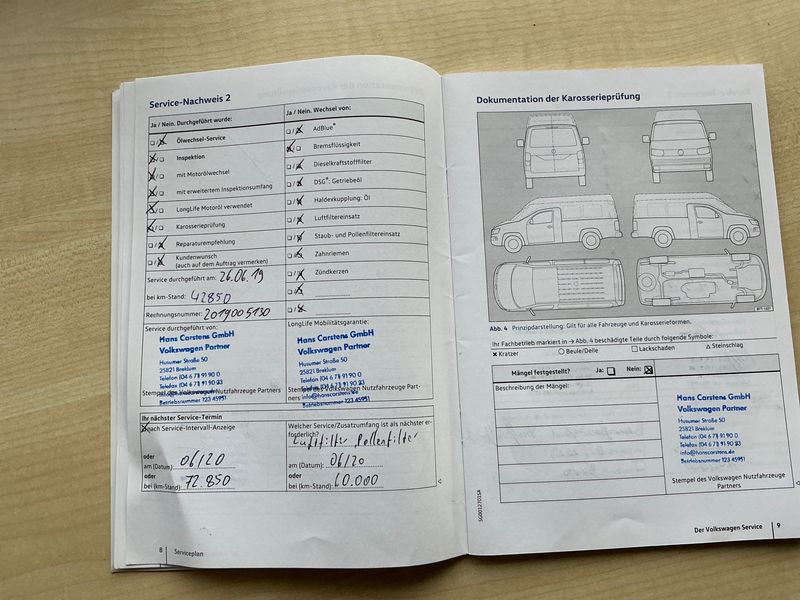 Service-Nachweis 2
Ja / Nein. Durchgeführt wurde:
Ölwechsel-Service
Inspektion
mit Motorölwechsel
mit erweitertem Inspektionsumfang
LongLife Motoröl verwendet
Karosserieprüfung
Reparaturempfehlung
Kundenwunsch
(auch auf dem Auftrag vermerken)
Service durchgeführt am: 26.06.19
bei km-Stand: 42850
Rechnungsnummer: 2019005130
Service durchgeführt von:
Hans Carstens GmbH
Volkswagen Partner
Husumer Straße 50
25821 Breklum
Telefon (0 46 71) 91 90 0
Telefax (0 46 71) 91 90 33
Betriebsnummer 123 45951
Stempel des Volkswagen Nutzfahrzeuge Partners
Ja / Nein. Wechsel von:
AdBlue®
Bremsflüssigkeit
Dieselkraftstofffilter
DSG®: Getriebeöl
Haldexkupplung: Öl
Luftfiltereinsatz
Staub- und Pollenfiltereinsatz
Zahnriemen
Zündkerzen
LongLife Mobilitätsgarantie:
Hans Carstens GmbH
Volkswagen Partner
Husumer Straße 50
25821 Breklum
Telefon (0 46 71) 91 90 0
Telefax (0 46 71) 91 90 33
info@hanscarstens.de
Betriebsnummer 123 45951
Stempel des Volkswagen Nutzfahrzeuge Part-
ners
Ihr nächster Service-Termin
nach Service-Intervall-Anzeige
oder
am (Datum): 06/20
oder
bei (km-Stand): 72.850
Welcher Service/Zusatzumfang ist als nächster er-
forderlich?
Luftfilter Pollenfilter
am (Datum): 06/20
oder
bei (km-Stand): 60.000
8 Serviceplan
Dokumentation der Karosserieprüfung
Abb. 4 Prinzipdarstellung: Gilt für alle Fahrzeuge und Karosserieformen.
Ihr Fachbetrieb markiert in → Abb. 4 beschädigte Teile durch folgende Symbole:
× Kratzer ○ Beule/Delle □ Lackschaden △ Steinschlag
Mängel festgestellt? Ja: Nein:
Beschreibung der Mängel:
Hans Carstens GmbH
Volkswagen Partner
Husumer Straße 50
25821 Breklum
Telefon (0 46 71) 91 90 0
Telefax (0 46 71) 91 90 33
info@hanscarstens.de
Betriebsnummer 123 45951
Stempel des Volkswagen Nutzfahrzeuge
Partners
SG0012701SA
Der Volkswagen Service 9